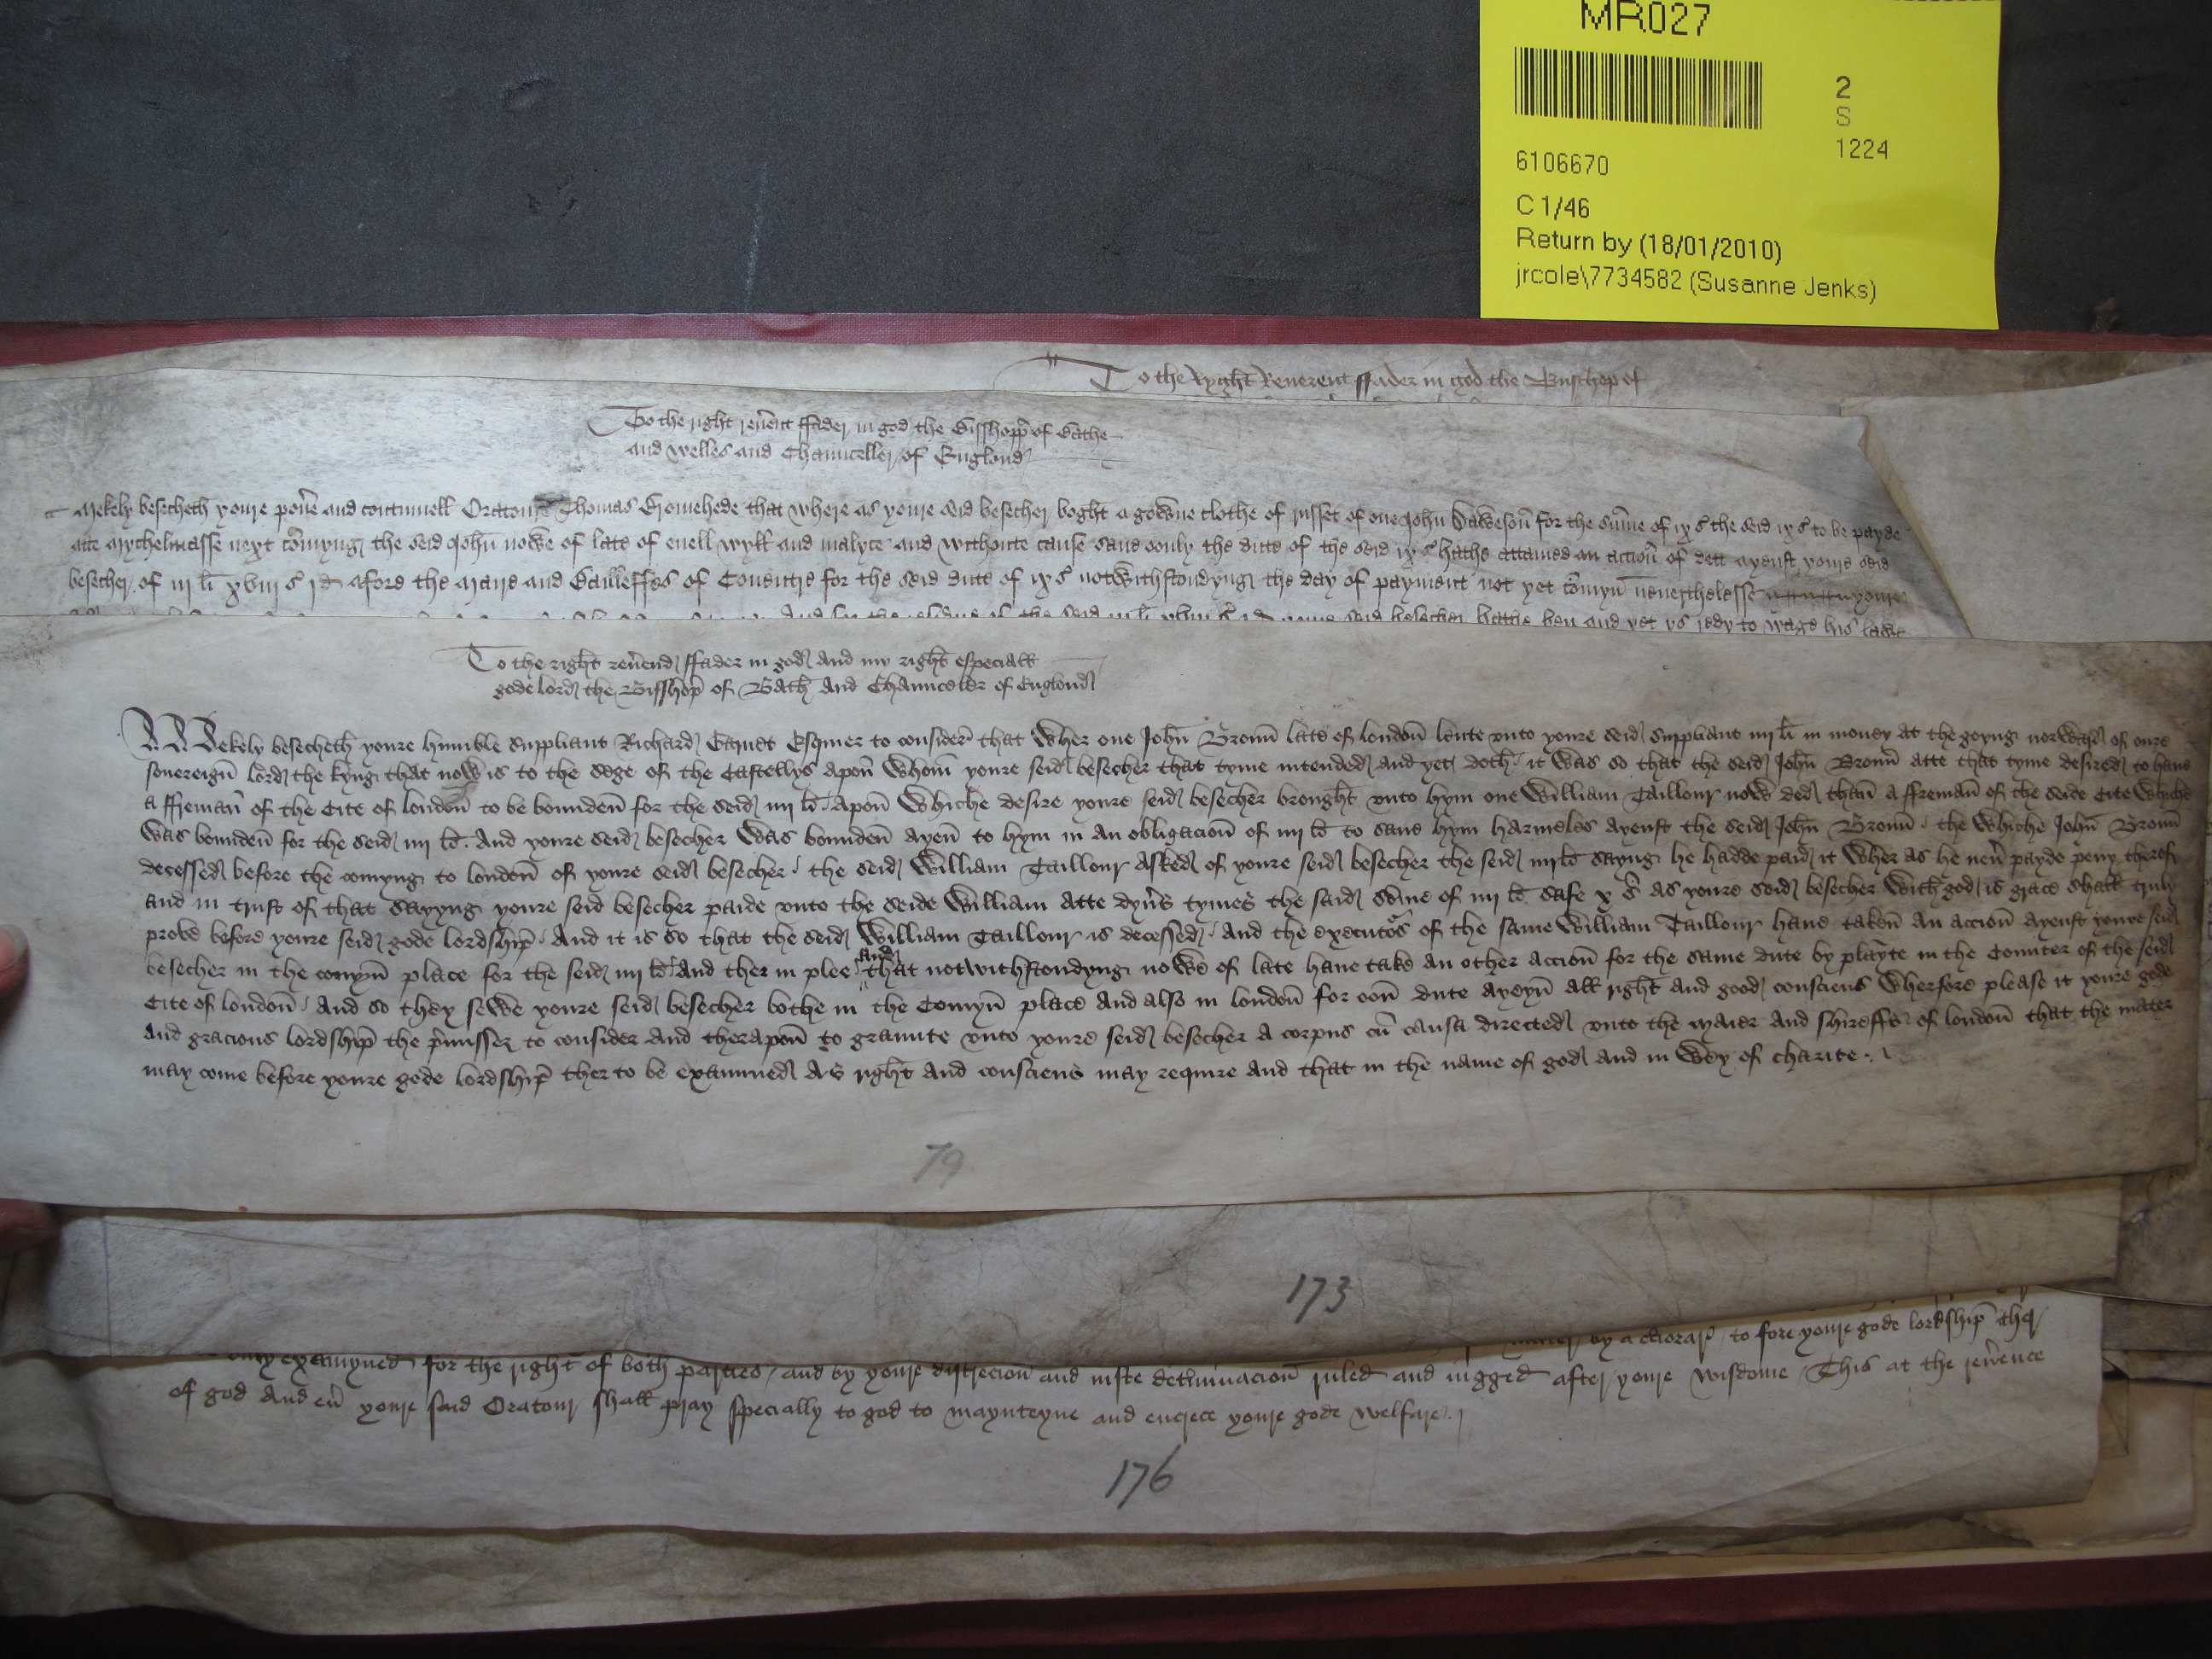 MR027
2
S
1224
6106670
C 1/46
Return by (18/01/2010)
jrcole\7734582 (Susanne Jenks)
To the Ryght Reuerent ffader in god the Busschop of
To the right reu'ent ffader in god the Bisshopp' of Bathe
and Welles and Chaunceller of Englond
Mekely besecheth youre pou'e and contynuell Oratour Thomas Gromehede that where as youre seid besecher boght a gowne clothe of russet of one John Daweson for the su'me of ix s' the seid ix s' to be payde
atte Mychelmasse next co'myng the seid John nowe of late of euell wyll and malyce and withoute cause saue oonly the dute of the seid ix s' haths attamed an accion of dett ayenst youre seid
besecher of iij li xviij s' j d afore the Maire and Bailleffes of Couentre for the seid dute of ix s' notwithstondyng the day of payment not yet co'myn neuerthelesse youre
seid besecher hathe ben and yet ys redy to wage his lawe
To the right reu'end ffader in god and my right especiall
gode lord the Bisshop of Bath and Chaunceler of Englond
Mekely besecheth youre humble suppliant Richard Carnet Esquier to consider' that Wher one John Broun late of london lente vnto youre seid suppliant iiij li in money at the goyng northward of oure
souereign lord the kyng that now is to the sege of the Castellys apon whom youre seid besecher that tyme intended and yet doth it was so that the seid John Broun atte that tyme desired to haue
a ffreman of the Cite of london to be bounden for the seid iiij li. apon Whiche desire youre seid besecher brought vnto hym one William Taillour now ded than a ffreman of the seide Cite Whiche
was bounden for the seid iiij li. And youre seid besecher Was bounden ayen to hym in an obligacion of iiij li to saue hym harmeles ayenst the seid John Broun the whiche John Broun
decessed before the comyng to london of youre seid besecher the seid William Taillour Asked of youre seid besecher the seid iiij li sayng he hadde paid it Wher as he neu' payde peny therof
and in trust of that sayyng youre seid besecher paide vnto the seide William atte dyu's tymes the said so'me of iiij li safe x s' as youre seid besecher With god is grace shall truly
probe before youre seid gode lordship. And it is so that the seid William Taillour is decessed. And the executo's of the same William Taillour haue taken An accion ayenst youre seid
besecher in the comyn place for the seid iiij li And ther in plee and that notwithstondyng nowe of late haue take an other accion for the same dute by playte in the Counter of the seid
Cite of london. And so they sewe youre seid besecher bothe in the Comyn place and also in london for oon dute ayeyn all right and good consciens Wherfore please it youre gode
and gracious lordship the p'misser to consider and therapon to graunte vnto youre seid besecher a corpus cu' causa directed vnto the maier and shireffs of london that the mater
may come before youre gode lordship ther to be examined As right and consciens may require and that in the name of god and in Wey of charite.
79
173
by a to fore youre gode lordship ther
examyned for the right of both parties and by youre discrecion and iuste det'minacion ruled and jugged after youre wisdome This at the reu'ence
of god And eu' youre said Oratour shall pray specially to god to maynteyne and encrece youre gode welfare.
176